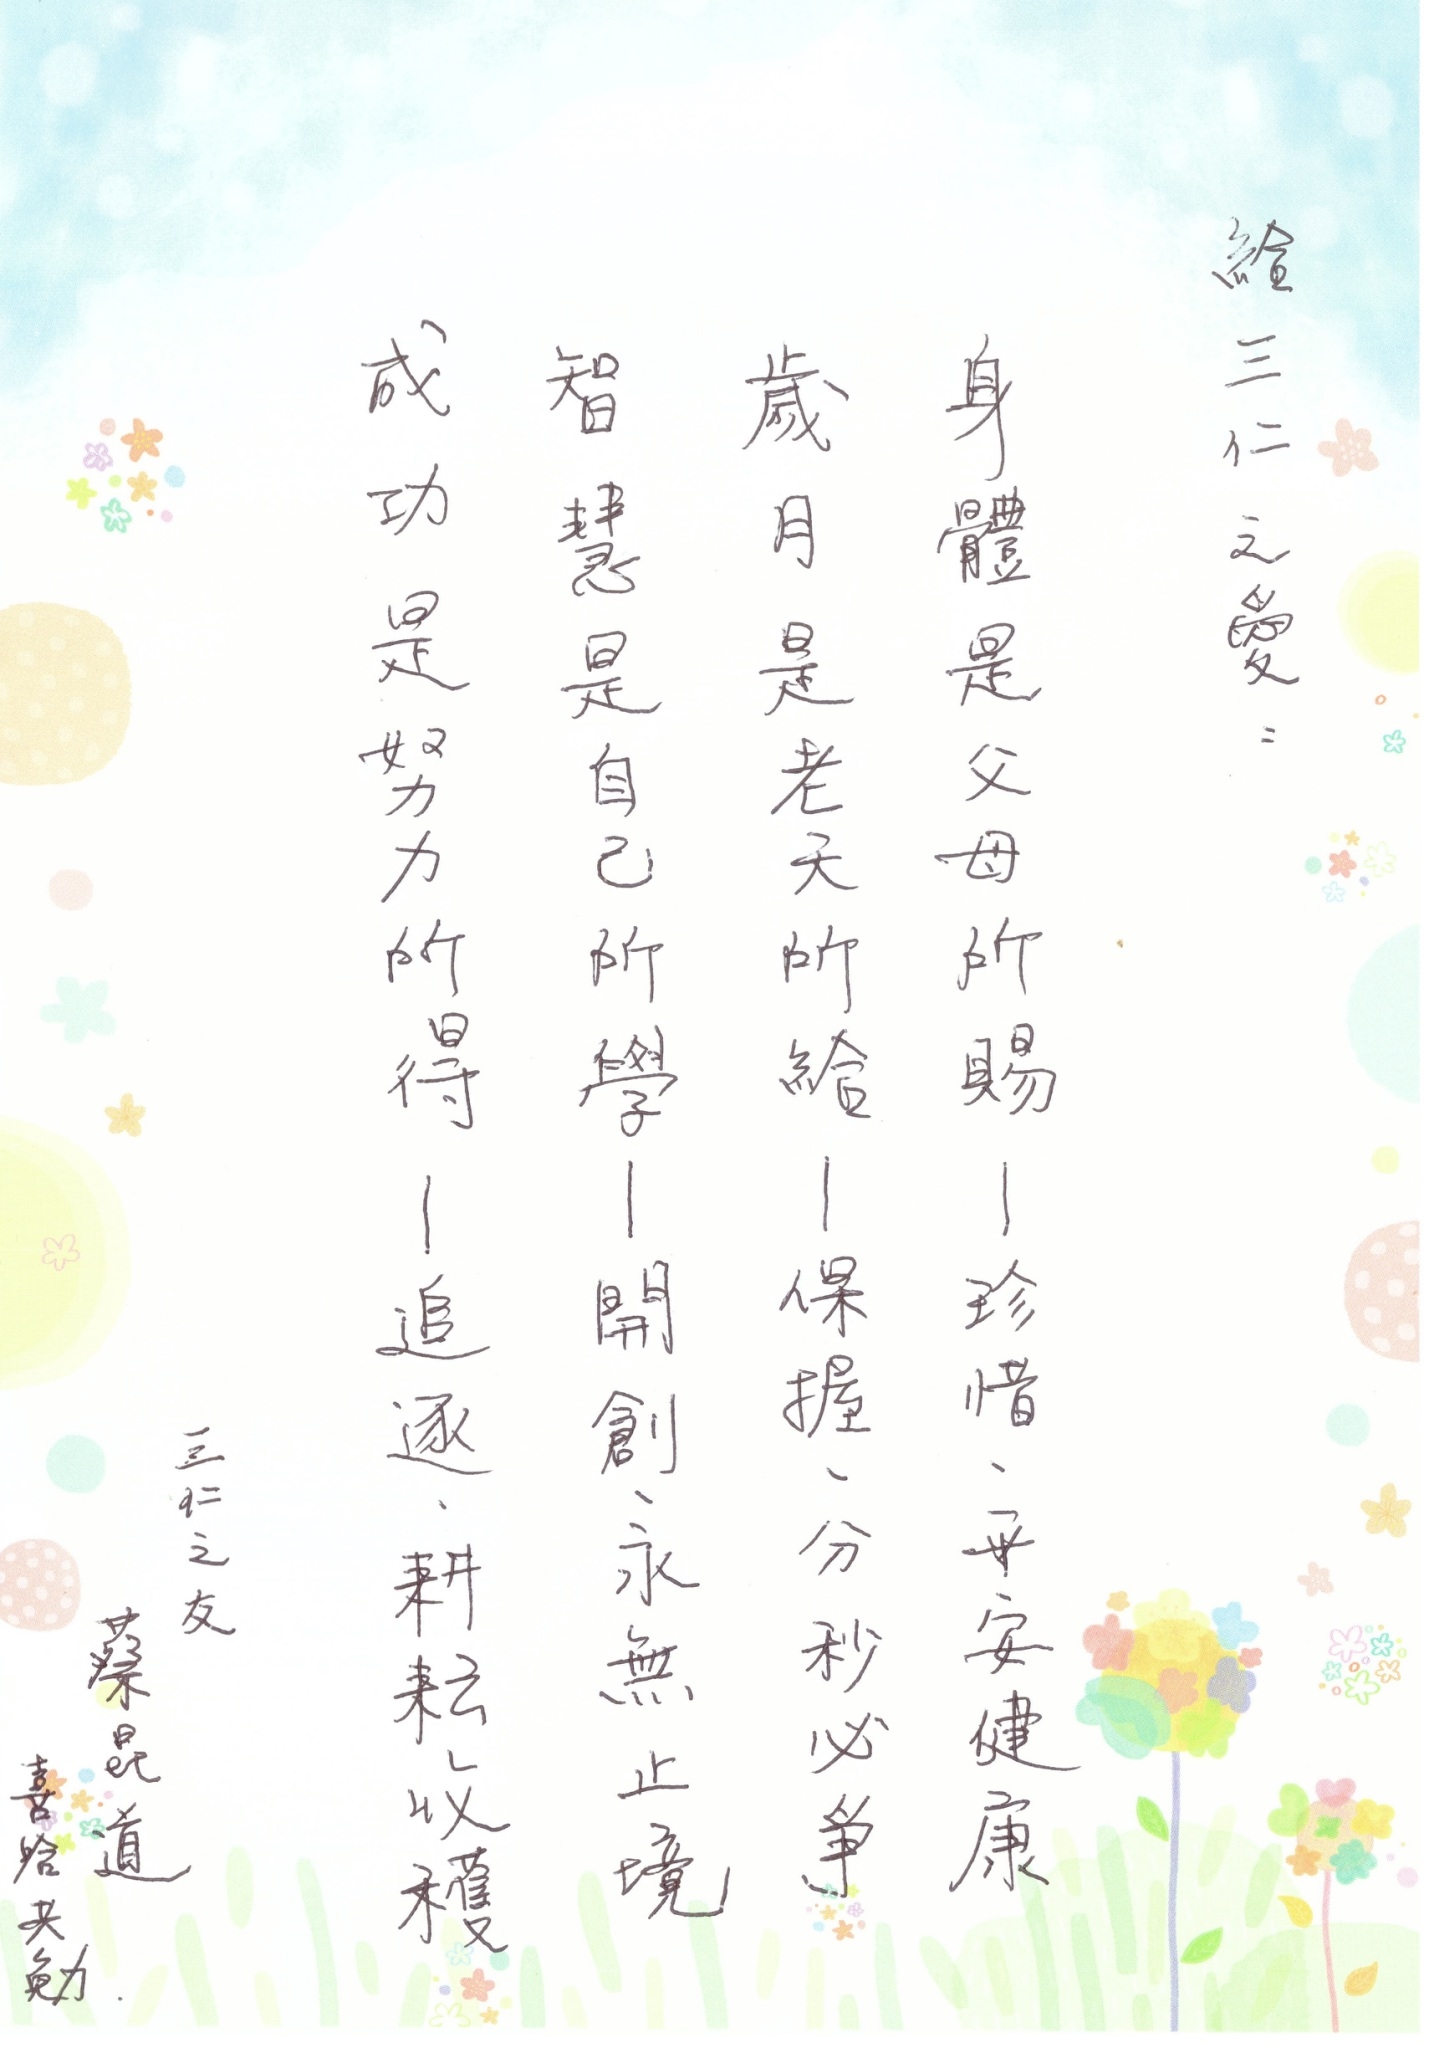 給三仁之愛：
身體是父母所賜－珍惜、平安健康
歲月是老天所給－保握、分秒必爭
智慧是自己所學－開創、永無止境
成功是努力所得－追逐、耕耘以穫
三仁之友
蔡昆道
喜哈共勉.